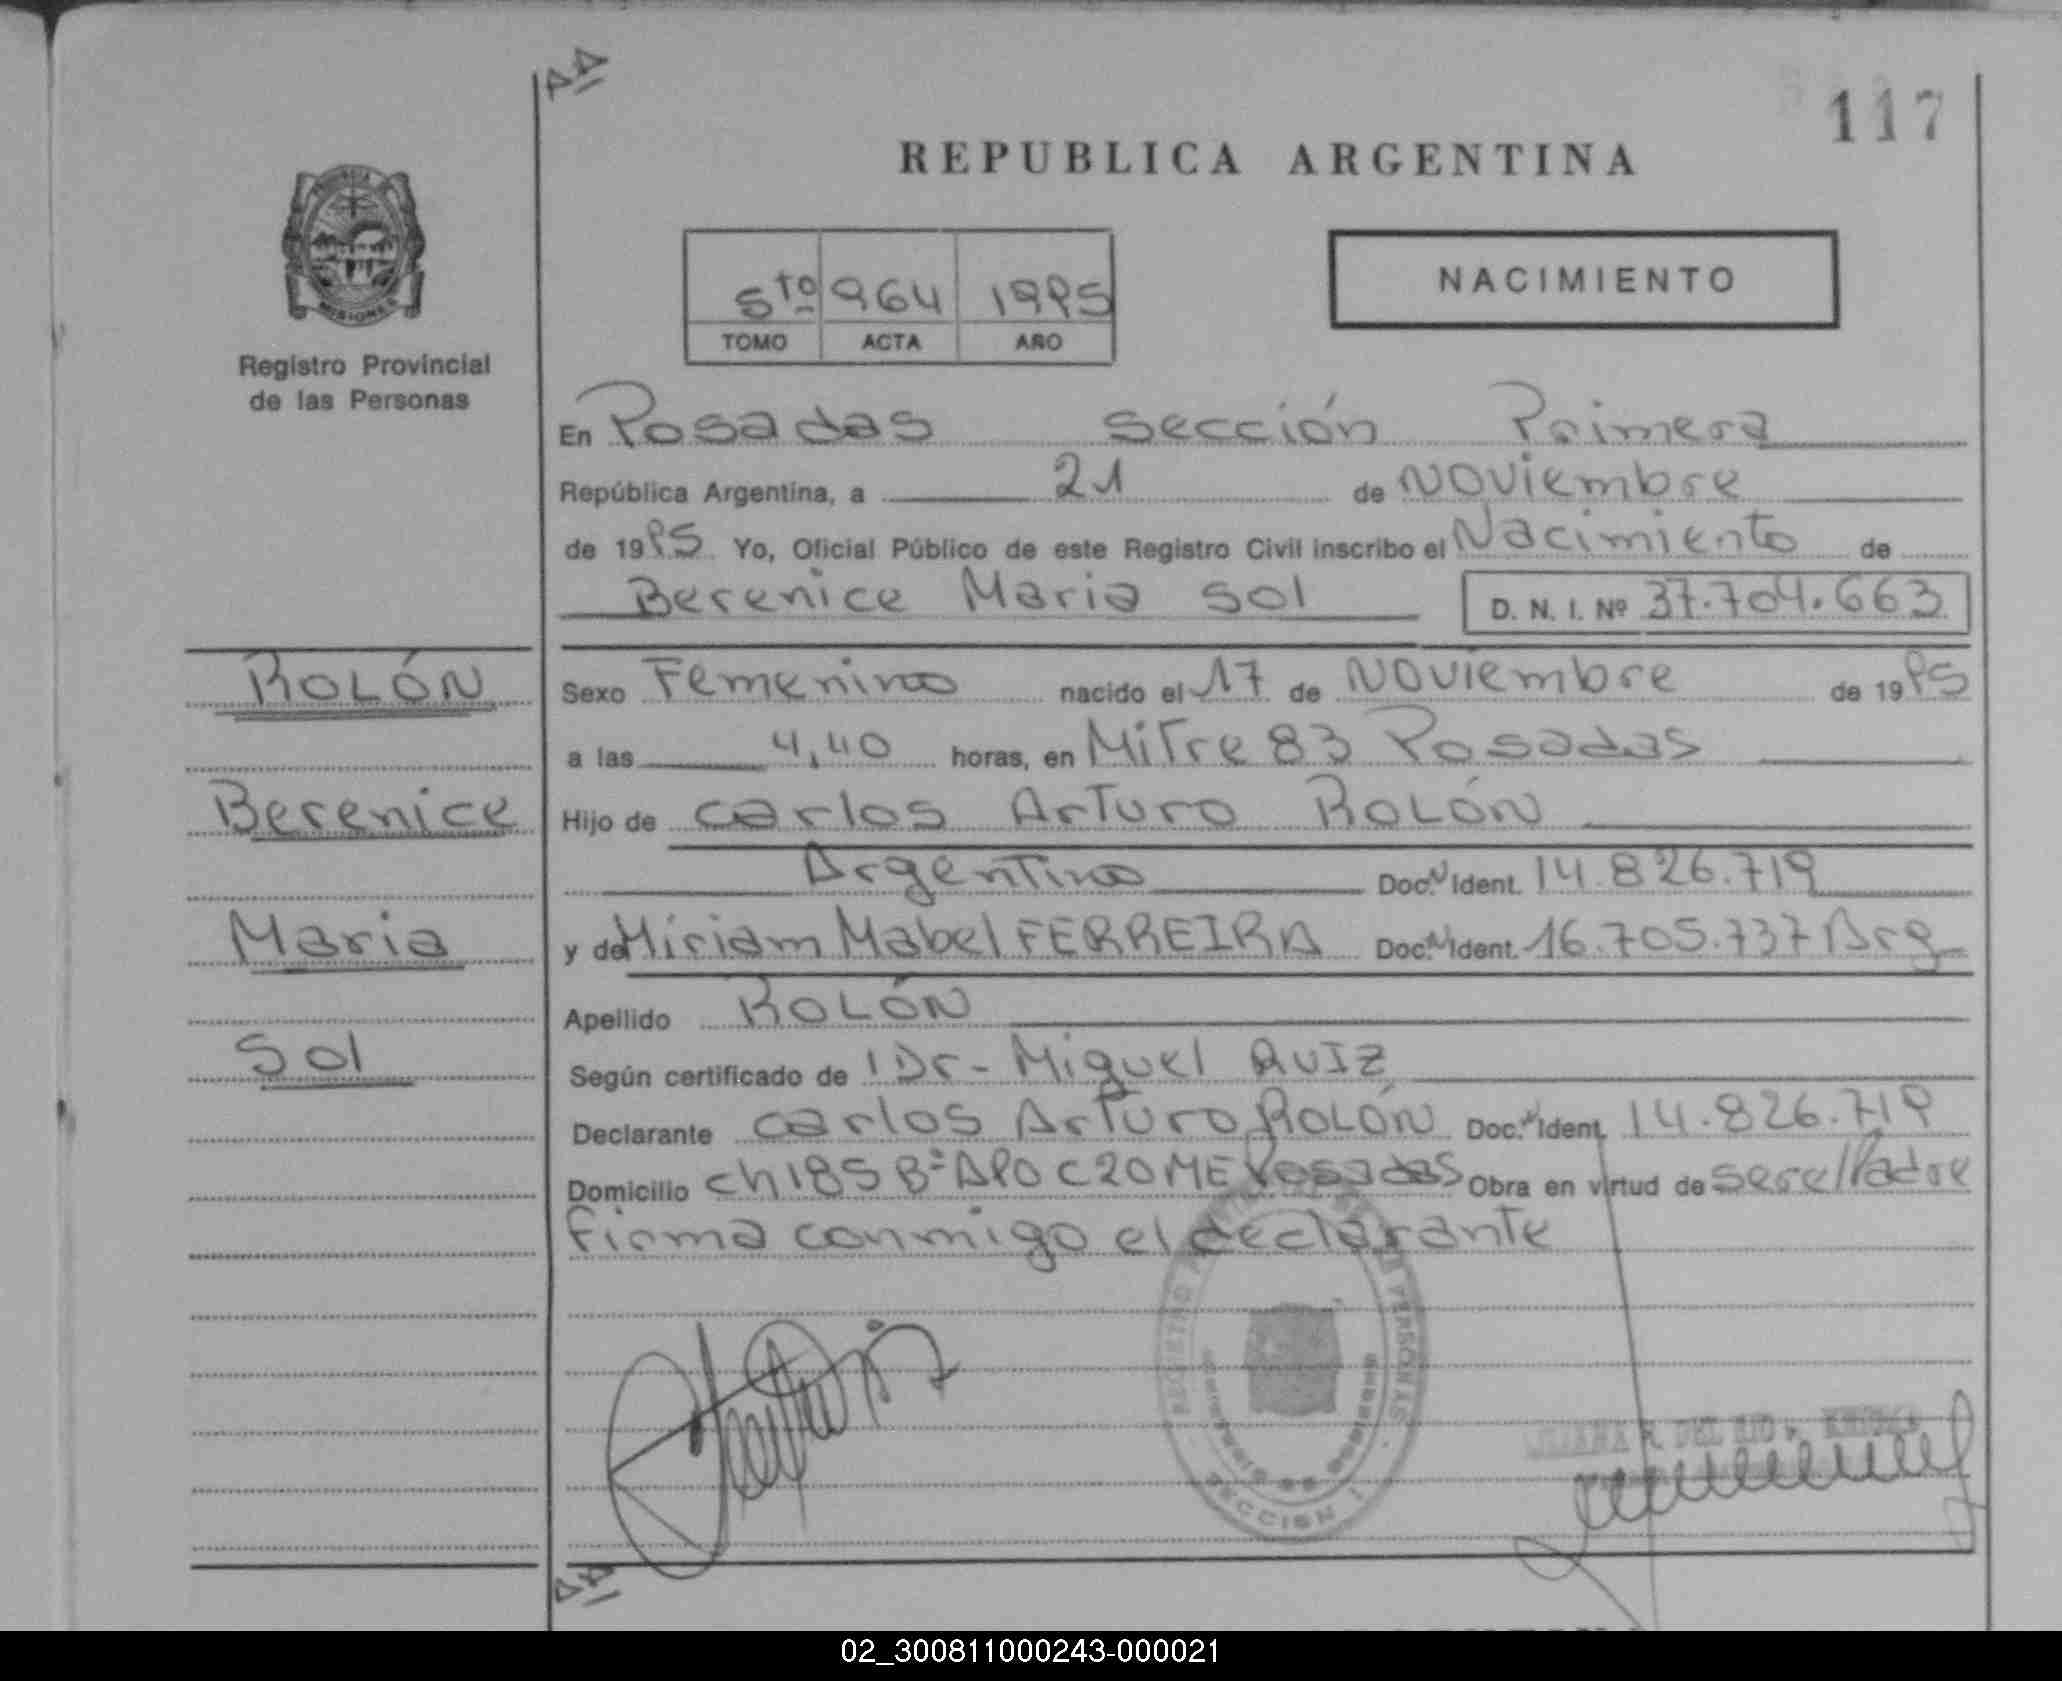 AA
117
REPUBLICA ARGENTINA
MISIONES
Registro Provincial
de las Personas
5to 964 1995
TOMO ACTA AÑO
NACIMIENTO
En Posadas sección Primera
República Argentina, a 21 de Noviembre
de 1995 Yo, Oficial Público de este Registro Civil inscribo el Nacimiento de
Berenice Maria Sol D. N. I. Nº 37.704.663
ROLÓN
Sexo Femenino nacido el 17 de Noviembre de 1995
a las 4,40 horas, en Mitre 83 Posadas
Berenice
Hijo de Carlos Arturo ROLÓN
Argentino Doc. N Ident. 14.826.719
Maria
y de Miriam Mabel FERREIRA Doc. N Ident. 16.705.737 Arg
Apellido ROLÓN
Sol
Según certificado de Dr - Miguel RUIZ
Declarante Carlos Arturo ROLÓN Doc. N Ident. 14.826.719
Domicilio ch 185 Bº APO C20 ME Posadas Obra en virtud de ser el Padre
firma conmigo el declarante
PERSONAS
SECCION 1
DEL RIO
AA
02_300811000243-000021